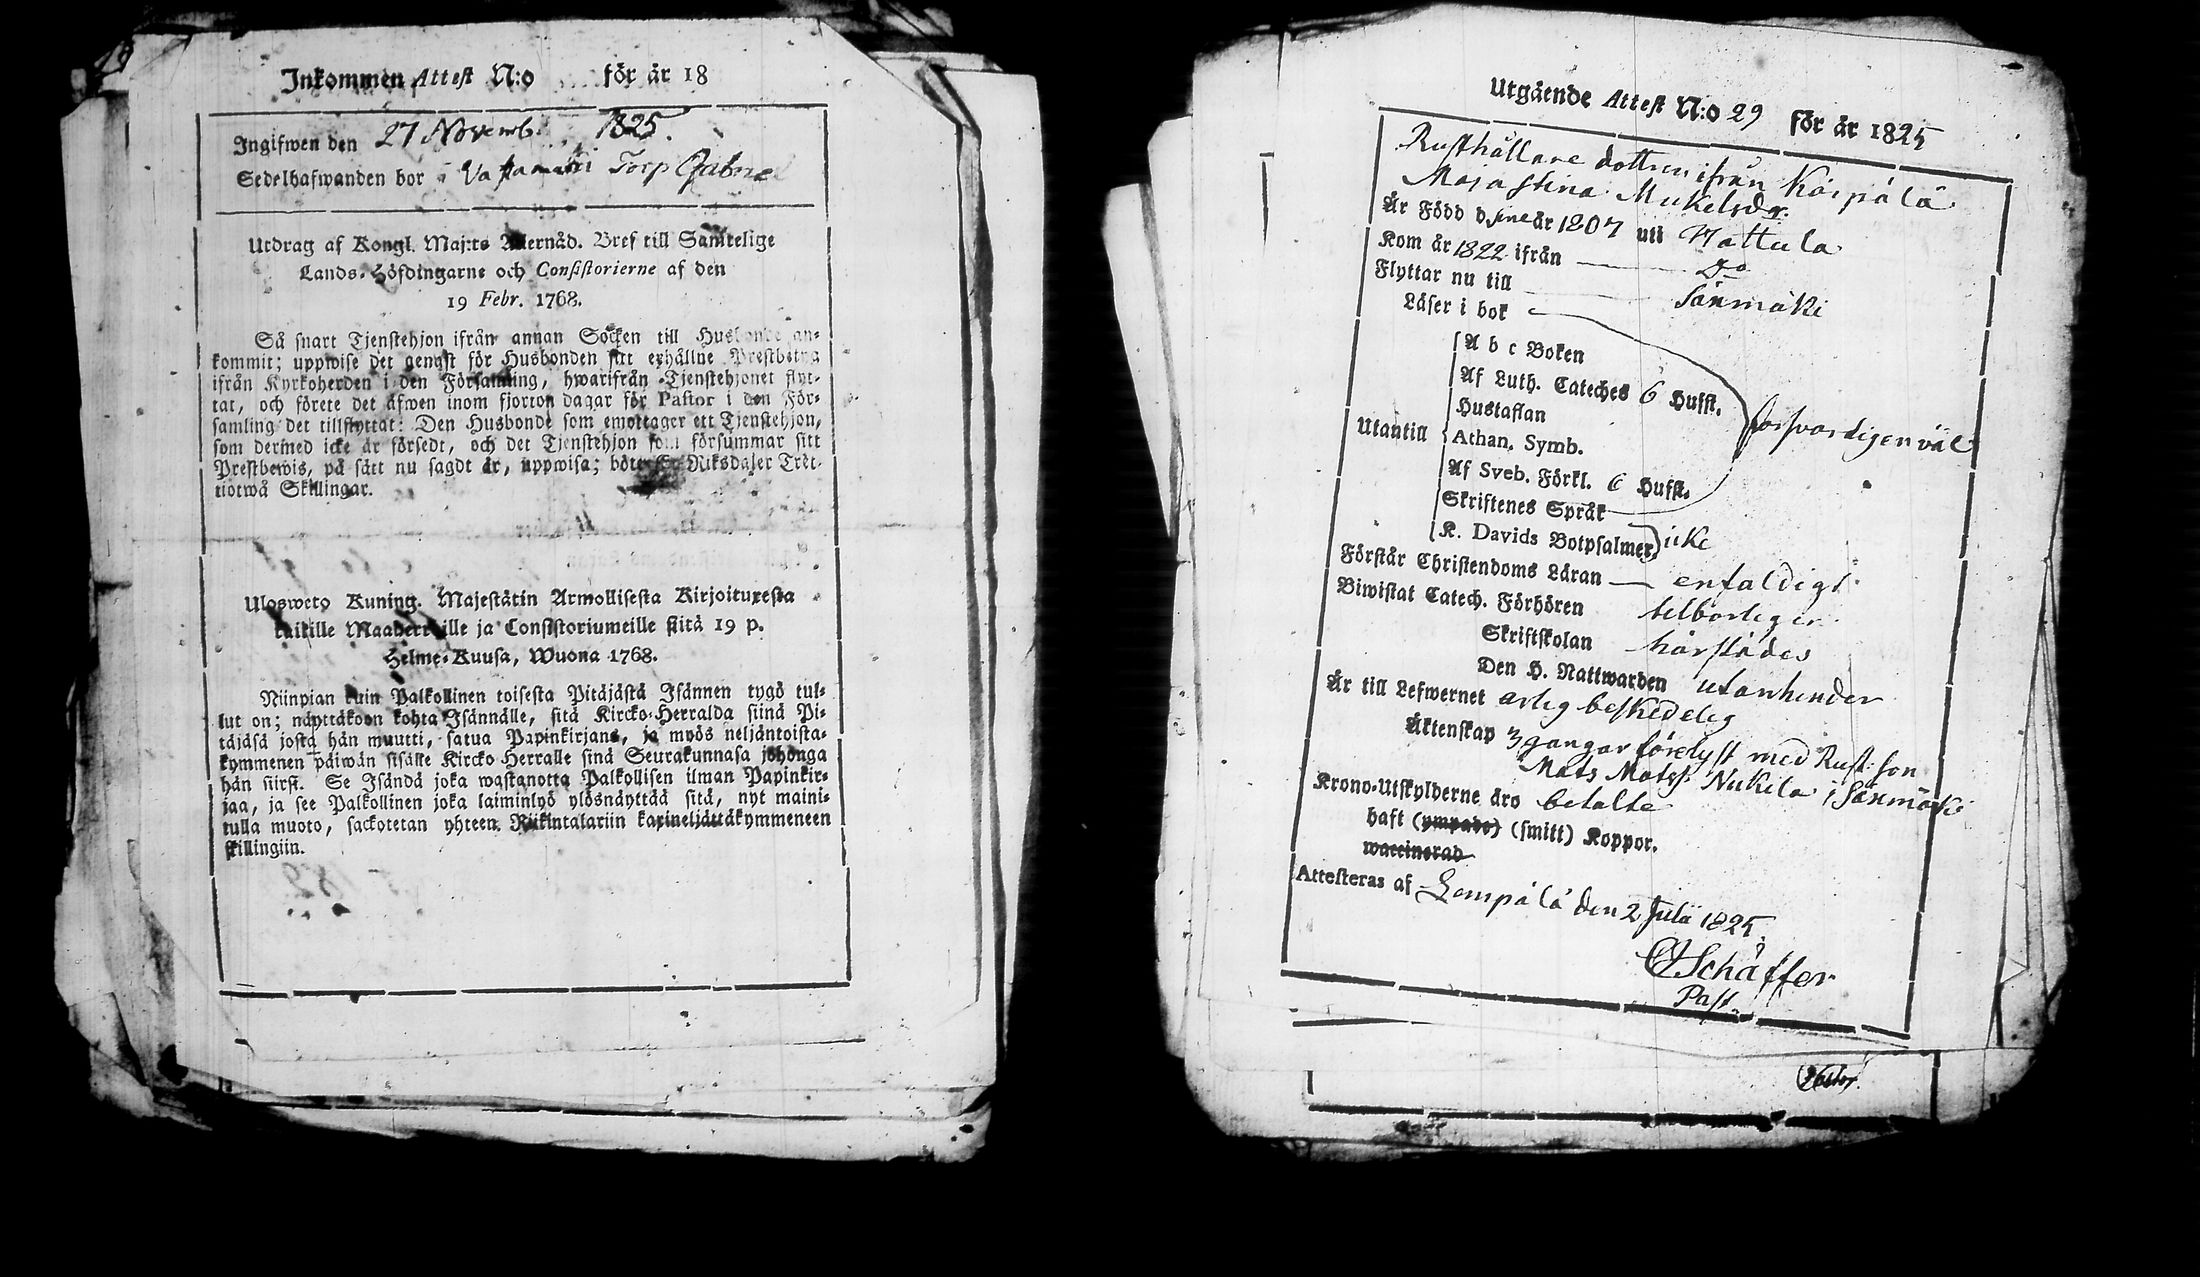 Inkommen Attest N:o för år 18
Ingifwen den 27 Novemb. 1825.
Sedelhafwanden bor i Torp Gabriel
Utdrag af Kongl. Maj:ts Allernåd. Bref till Samtelige
Lands-Höfdingarne och Consistorierne af den
19 Febr. 1768.
Så snart Tjenstehjon ifrån annan Socken till Husbonde an-
kommit; uppwise det genast för Husbonden sitt erhållne Prestbetyg
ifrån Kyrkoherden i den Församling, hwarifrån Tjenstehjonet flyt-
tat, och förete det äfwen inom fjorton dagar för Pastor i den För-
samling det tillflyttat: Den Husbonde som emottager ett Tjenstehjon,
som dermed icke är försedt, och det Tjenstehjon som försummar sitt
Prestbewis, på sätt nu sagdt är, uppwisa; böte En Riksdaler Tret-
tiotwå Skillingar.
Ulosweto Kuning. Majestätin Armollisesta Kirjoituxesta
kaikille Maaherroille ja Consistoriumeille siitä 19 p.
Helme-Kuusa, Wuona 1768.
Niinpian kuin Palkollinen toisesta Pitäjästä Isännen tygö tul-
lut on; näyttäkään kohta Isännälle, sitä Kircko-Herralda siinä Pi-
täjäsä josta hän muutti, saatua Papinkirjans, ja myös neljäntoista-
kymmenen päiwän sisälle Kircko Herralle sinä Seurakunnasa johonga
hän siirsi. Se Isändä joka wastanotta Palkollisen ilman Papinkir-
jaa, ja see Palkollinen joka laiminlyö ylösnäyttää sitä, nyt maini-
tulla muoto, sackotetan yhteen Riikintalariin kaxineljättäkymmeneen
skillingiin.
Utgående Attest N:o 29 för år 1825
Rusthållare dottren ifrån Kärpälä
Maja Stina Mickelsdr.
Är Född d sine år 1807 uti Hattula
Kom år 1822 ifrån Do
Flyttar nu till Sänmäki
Läser i bok
A b c Boken
Af Luth. Cateches 6 Hufst.
Hustaflan
Utantill Athan. Symb. försvarligen väl
Af Sveb. Förkl. 6 Hufst.
Skriftenes Språk
K. Davids Botpsalmer icke
Förstår Christendoms Läran enfaldigt
Biwistat Catech. Förhören behörligen
Skriftskolan härstädes
Den H. Nattwarden utanhinder
Är till Lefwernet ärlig beskedelig
Äktenskap 3 gångar förelyst med Rust. son
Mats Matss. Nukila i Sänmäki
Krono-Utskylderne äro betalte
haft (ympade) (smitt) Koppor.
waccinerad
Attesteras af Lempälä den 2 Julii 1825
Schäffer
Past.
Pastor